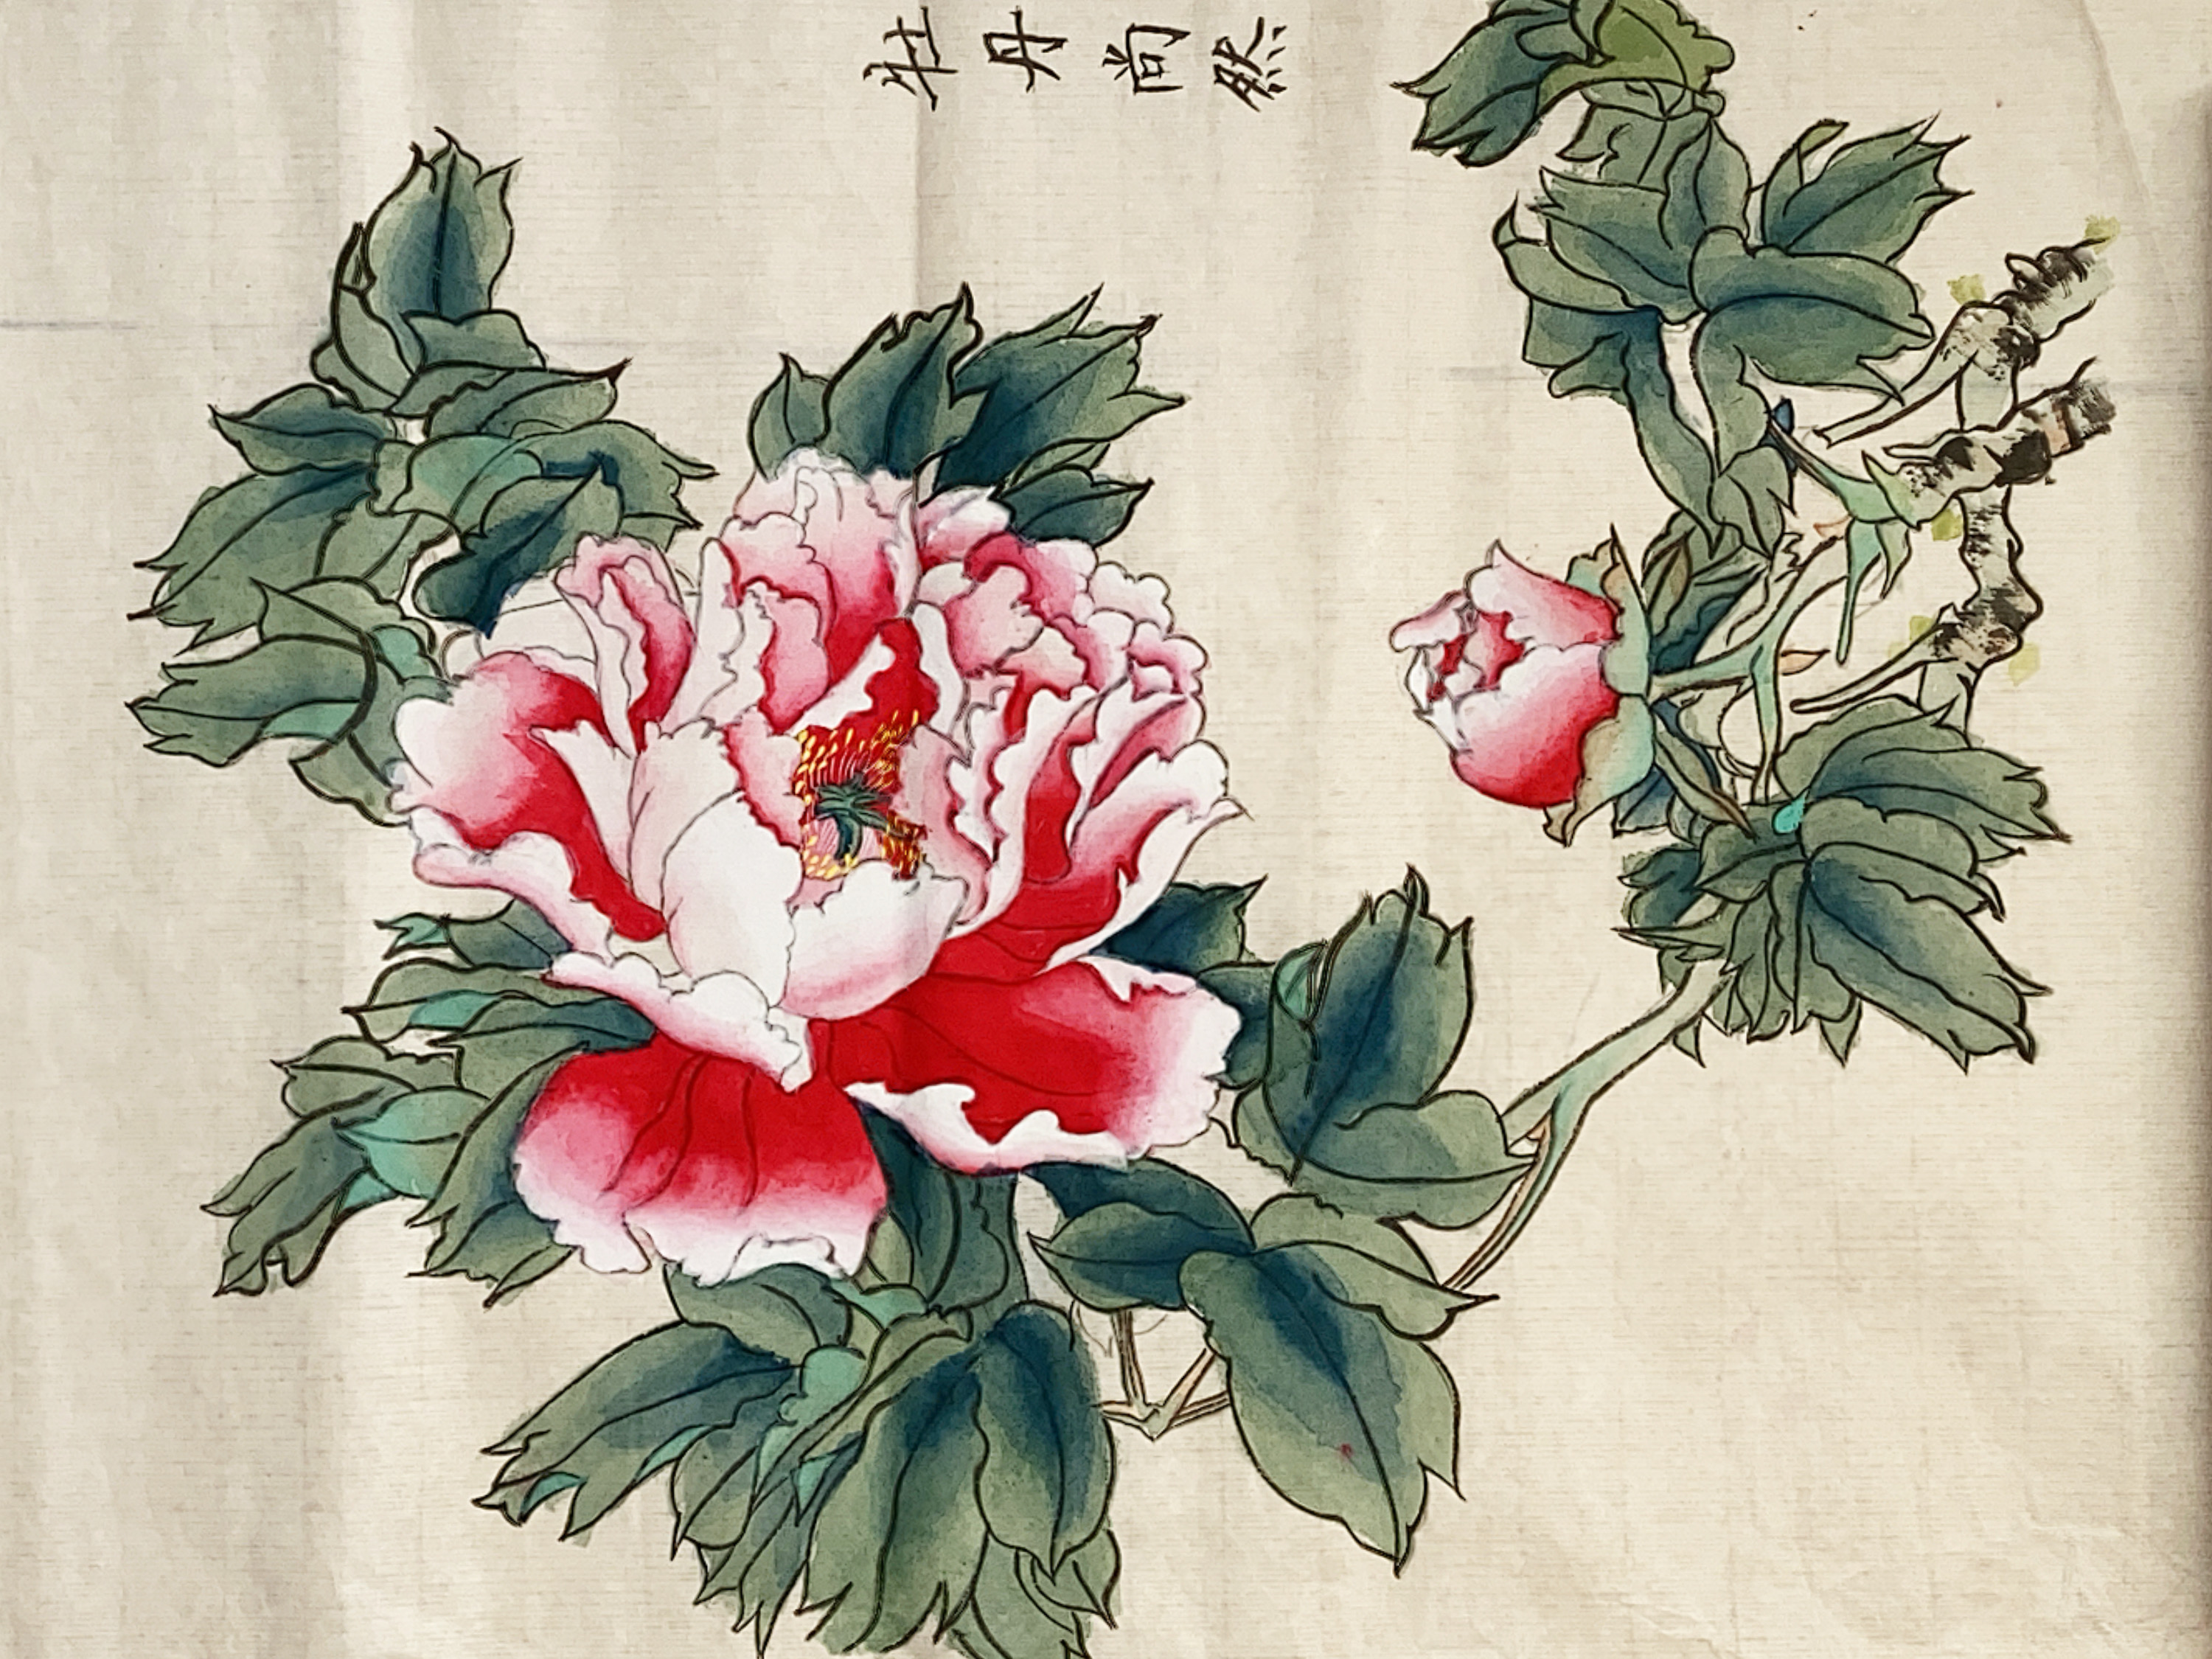 牡丹尚然